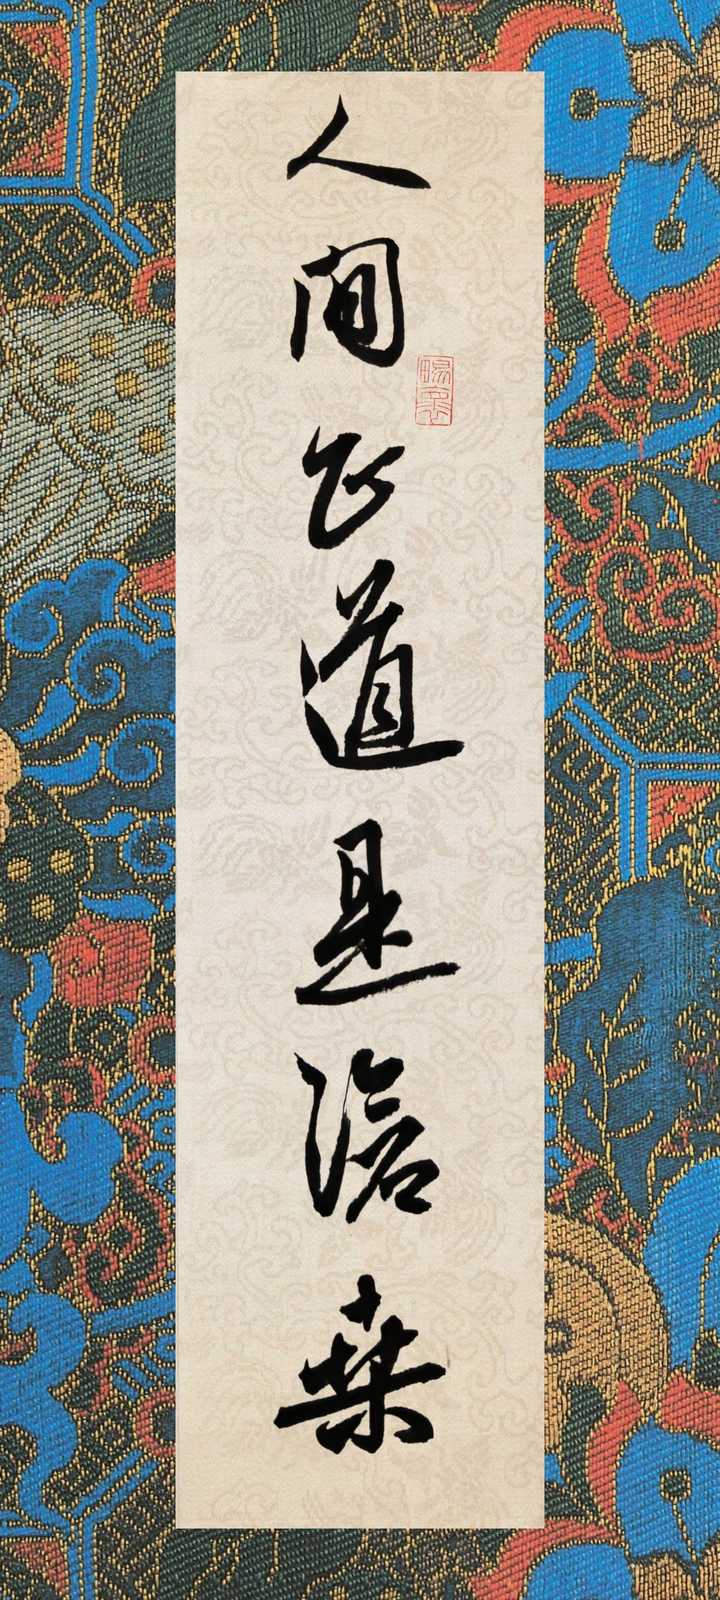 人間正道是滄桑